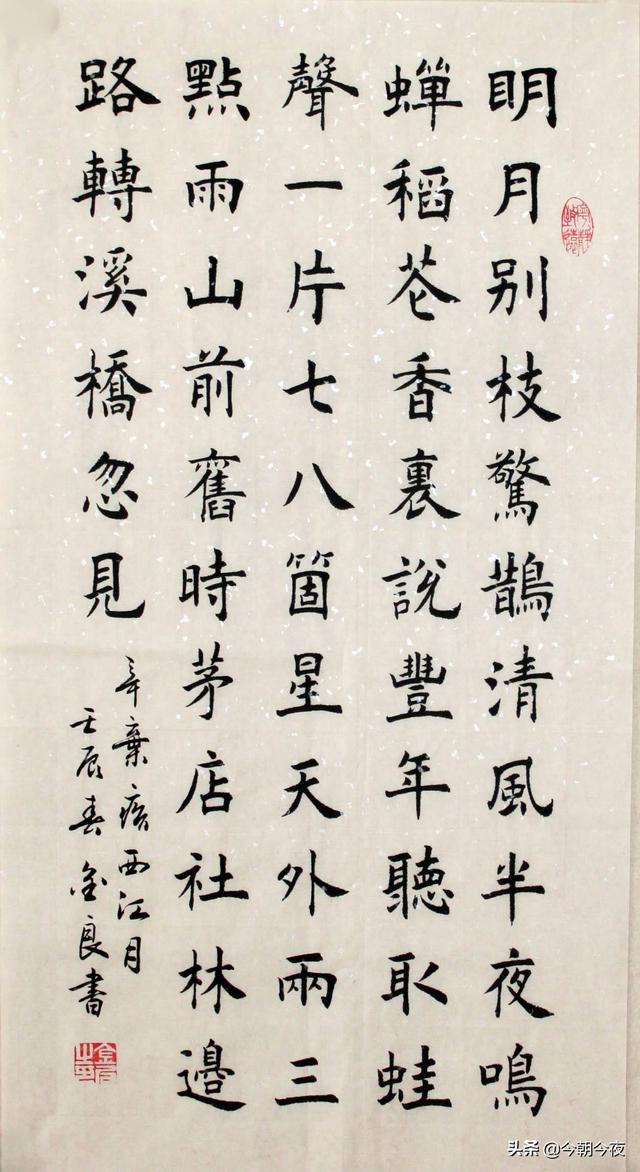 明月别枝驚鵲清風半夜鳴
蟬稻苍香裏說豐年聽取蛙
聲一片七八箇星天外兩三
點雨山前舊時茅店社林邊
路轉溪橋忽見
辛棄疾西江月
壬辰春金良書
寧靜致遠
头条 @今朝今夜